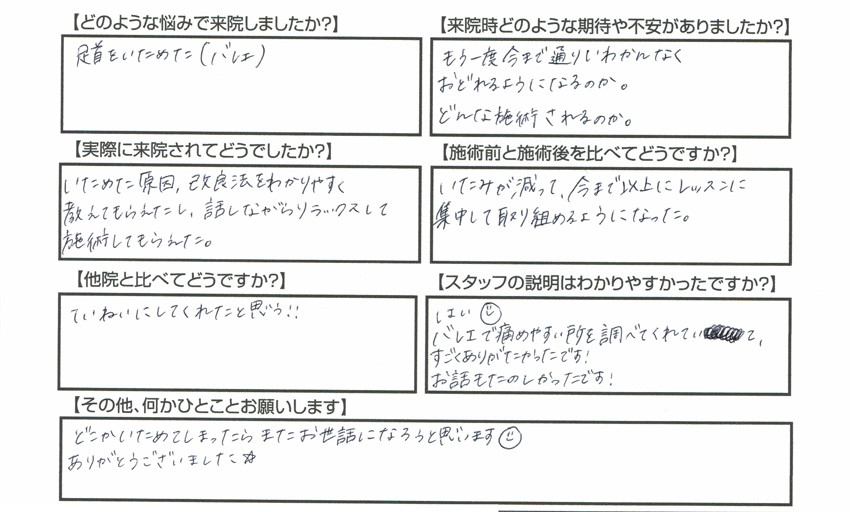 【どのような悩みで来院しましたか?】
足首をいためた(バレエ)
【来院時どのような期待や不安がありましたか?】
もう一度今まで通りいわかんなく
おどれるようになるのか。
どんな施術されるのか。
【実際に来院されてどうでしたか?】
いためた原因,改良法をわかりやすく
教えてもらえたし、話しながらリラックスして
施術してもらえた。
【施術前と施術後を比べてどうですか?】
いたみが減って、今まで以上にレッスンに
集中して取り組めるようになった。
【他院と比べてどうですか?】
ていねいにしてくれたと思う!!
【スタッフの説明はわかりやすかったですか?】
はい
バレエで痛めやすい所を調べてくれてい て、
すごくありがたかったです!
お話もたのしかったです!
【その他、何かひとことお願いします】
どこかいためてしまったら またお世話になろうと思います
ありがとうございました☆